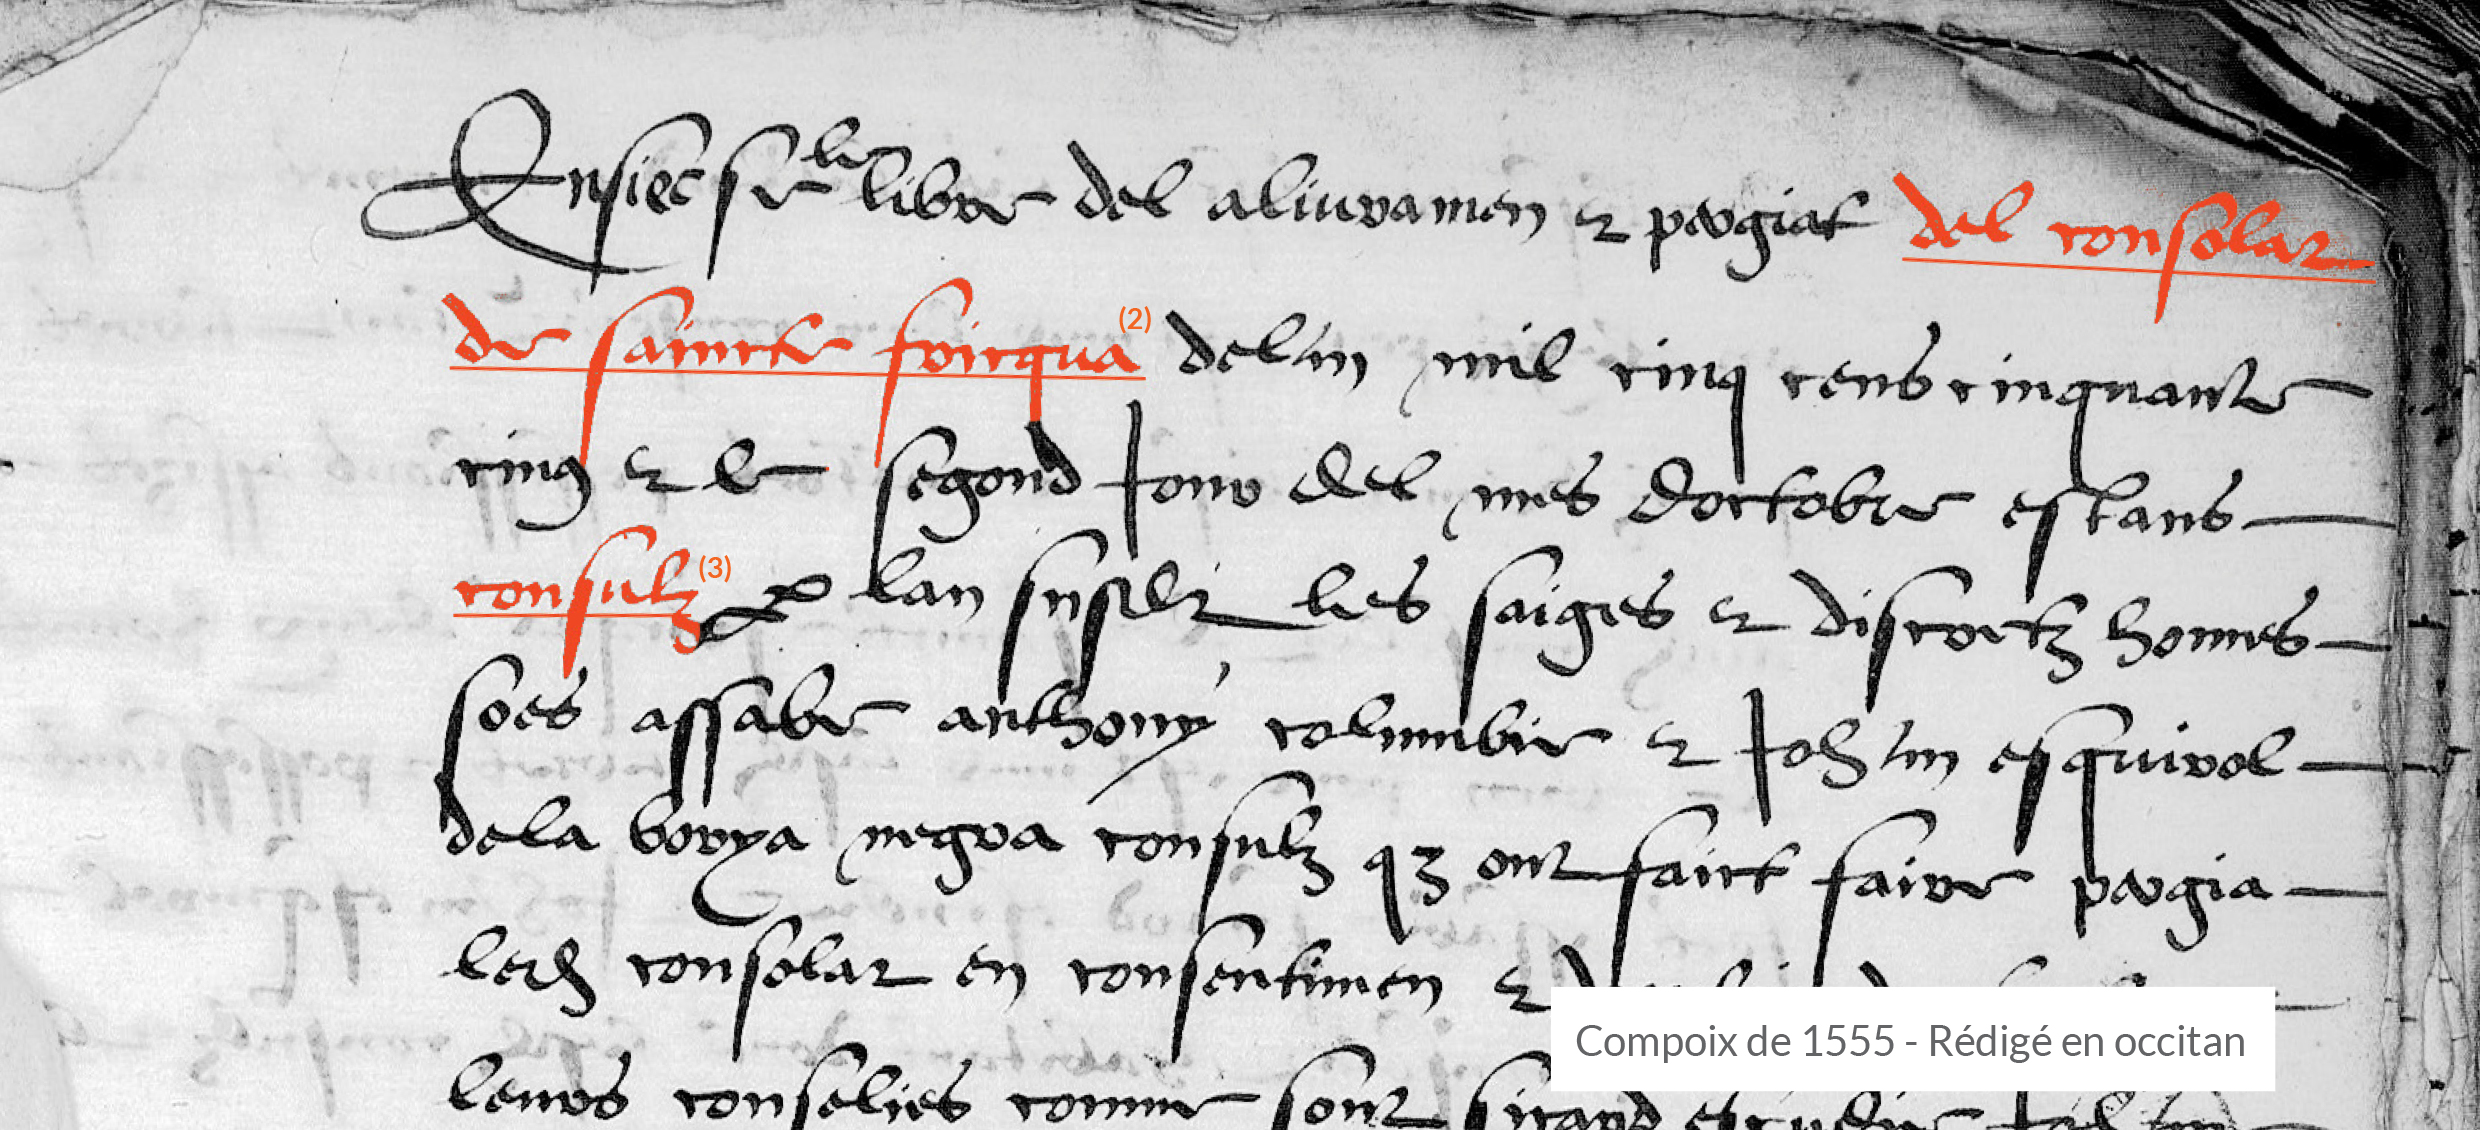 Ensiec se le libre del aliuramen & pergiat del consolat
de saincte foicqua (2) delan mil cinq cens cinquante
cinq & le segond Jour del mes doctobre estans
consulz (3) lan susdit les saiges & discretz homes
soes assaber anthony columbie & Johan esquirol
dela borya negra consulz qz ont faict faire pergia
led consolat en consentimen &
leurs conselies comme sont
Compoix de 1555 - Rédigé en occitan